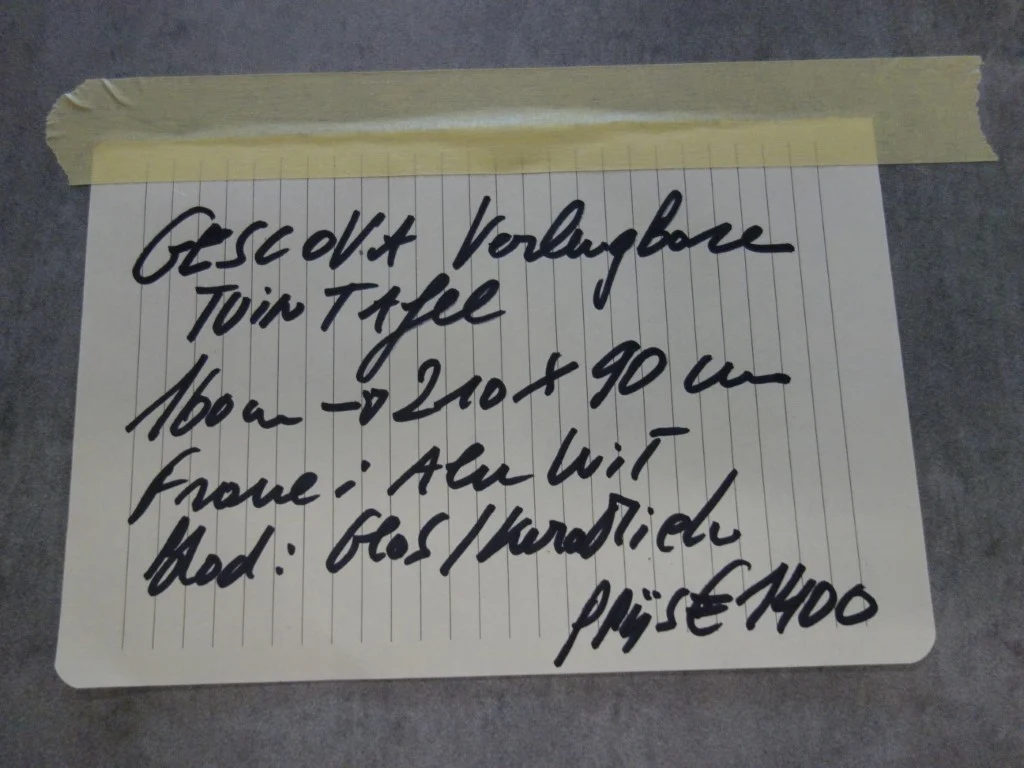 GESCOVA Verlengbare
TUIN TAfel
160cm → 210 x 90 cm
Frame : Alu WiT
Blad : Glas /
PRijs € 1400